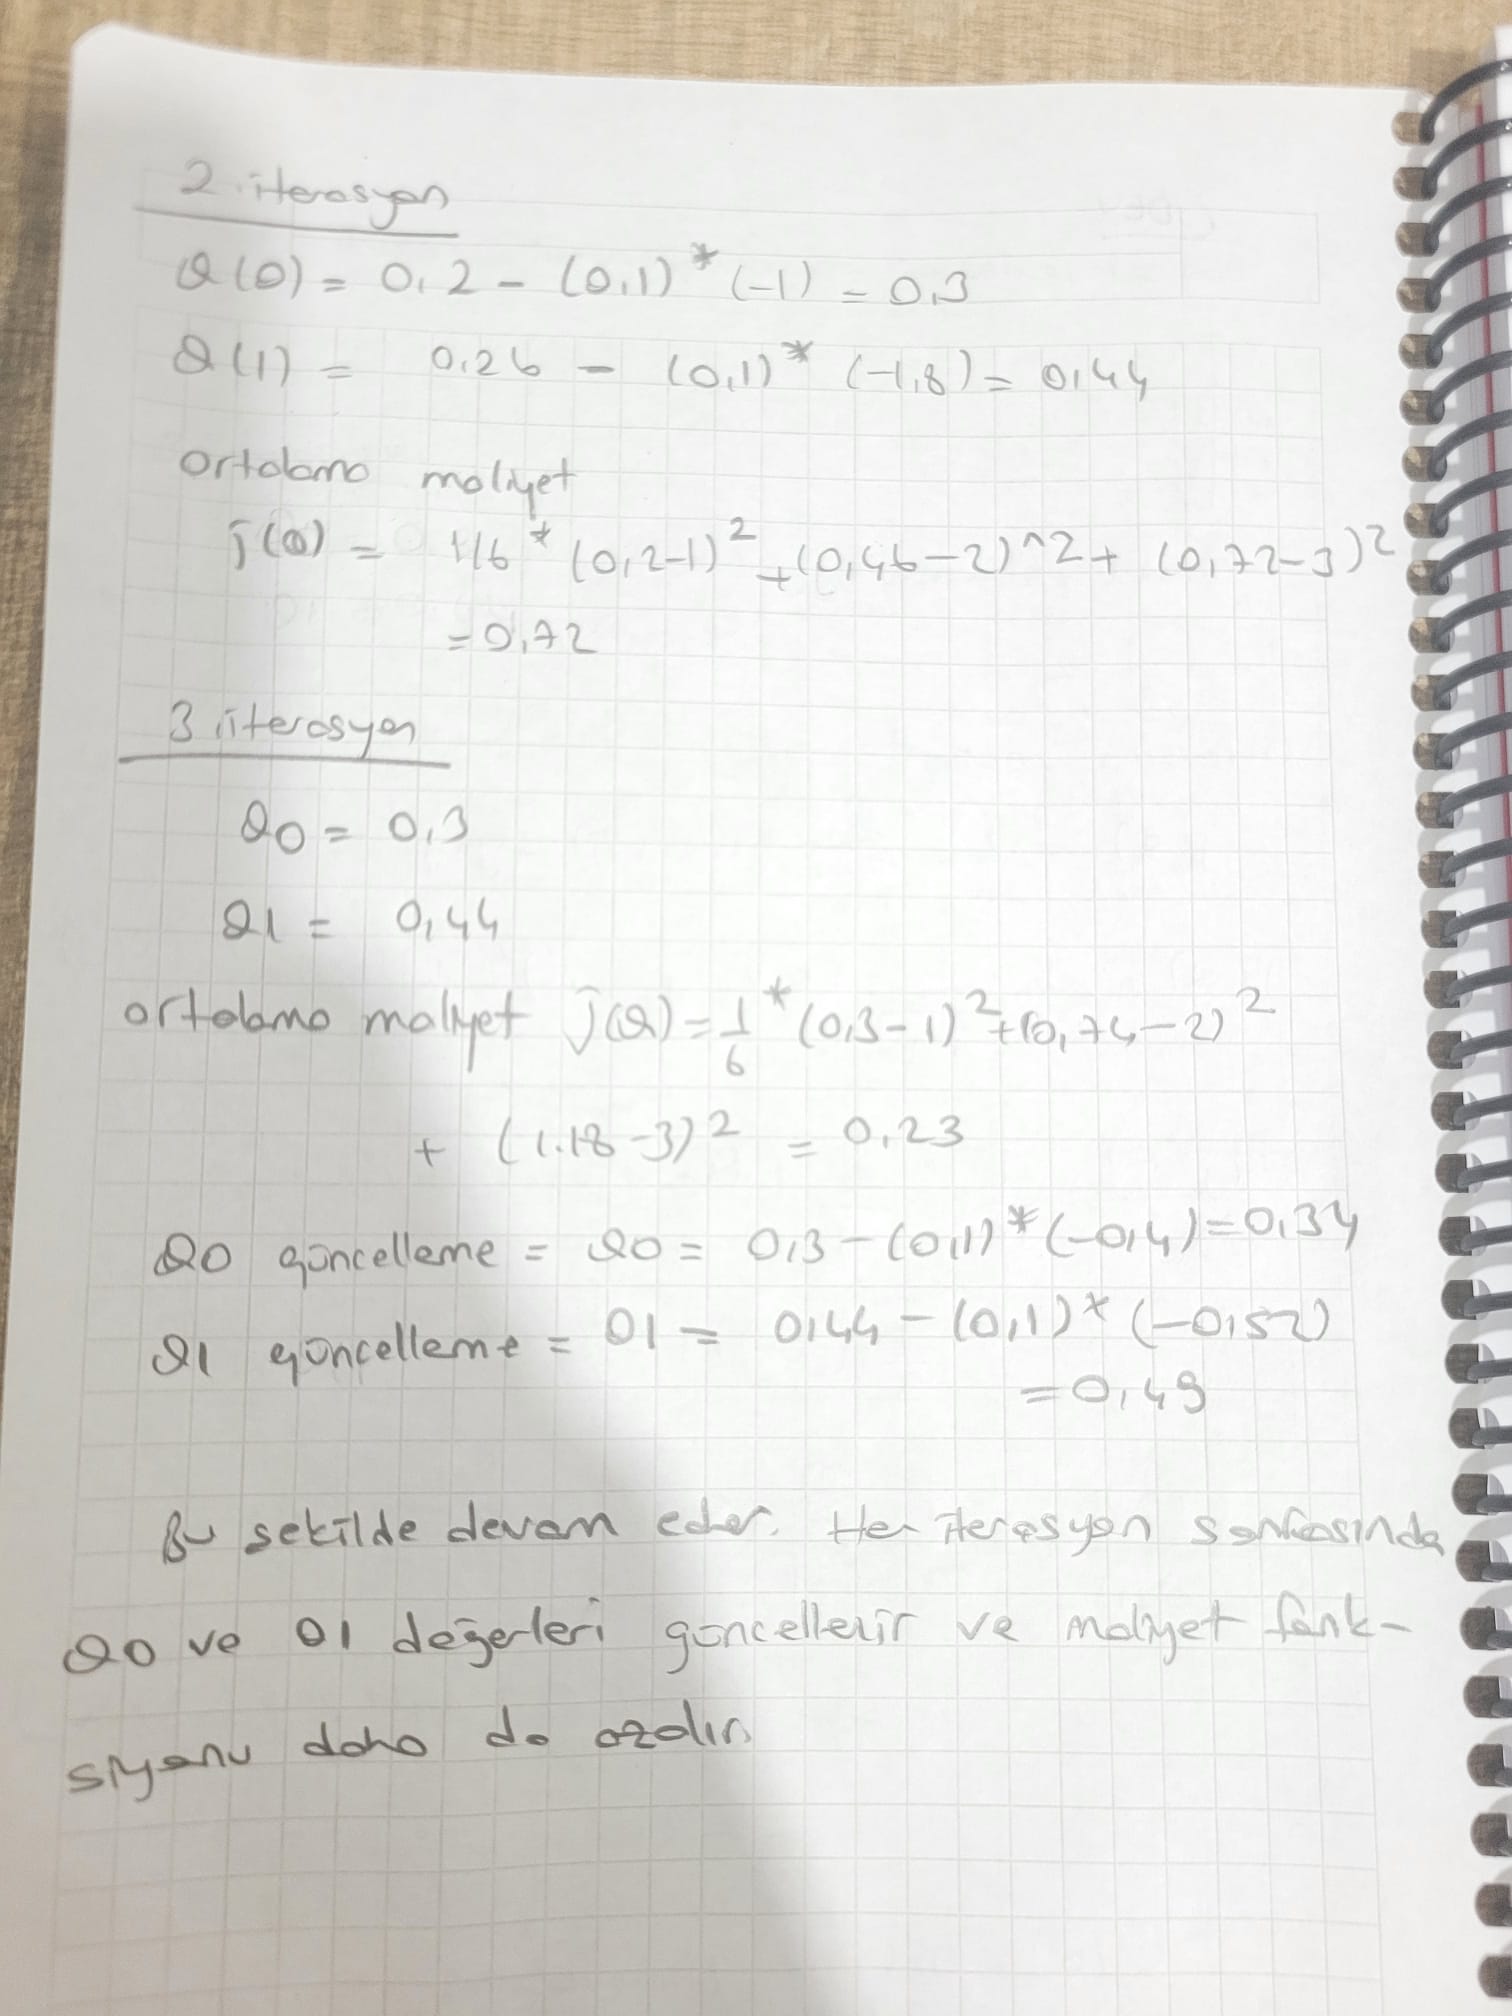 2. iterasyon
Q(0) = 0,2 - (0,1) * (-1) = 0,3
Q(1) = 0,26 - (0,1) * (-1,8) = 0,44
ortalama maliyet
j(Q) = 1/6 * (0,2-1)² + (0,46-2)^2 + (0,72-3)²
= 0,72
3 iterasyon
Q0 = 0,3
Q1 = 0,44
ortalama maliyet J(Q) = 1/6 * (0,3-1)² + (0,74-2)²
+ (1.18-3)² = 0,23
Q0 güncelleme = Q0 = 0,3 - (0,1) * (-0,4) = 0,34
Q1 güncelleme = 01 = 0,44 - (0,1) * (-0,52)
= 0,49
Bu sekilde devam eder. Her iterasyon sonrasında
Q0 ve 01 değerleri güncellenir ve maliyet fonk-
siyonu daha da azalır